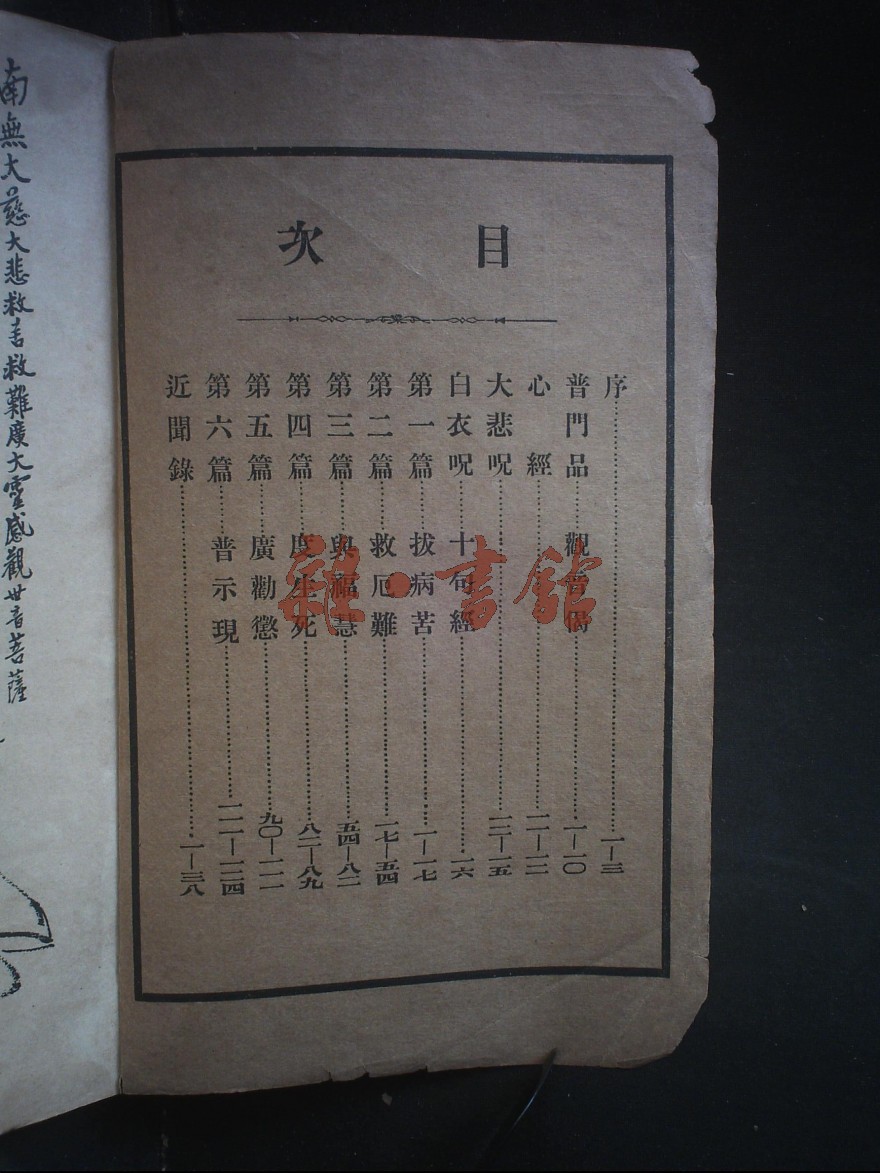 目次
序……一—三
普門品……觀音偈……一—一〇
心經……一一—一二
大悲呪……一二—一五
白衣呪……十句經……一六
第一篇……拔病苦……一—一七
第二篇……救厄難……一七—五四
第三篇……與福慧……五四—八二
第四篇……度生死……八二—八九
第五篇……廣勸懲……九〇—一一一
第六篇……普示現……一一一—一二四
近聞錄……一—三八
南無大慈大悲救苦救難廣大靈感觀世音菩薩
雜·書館